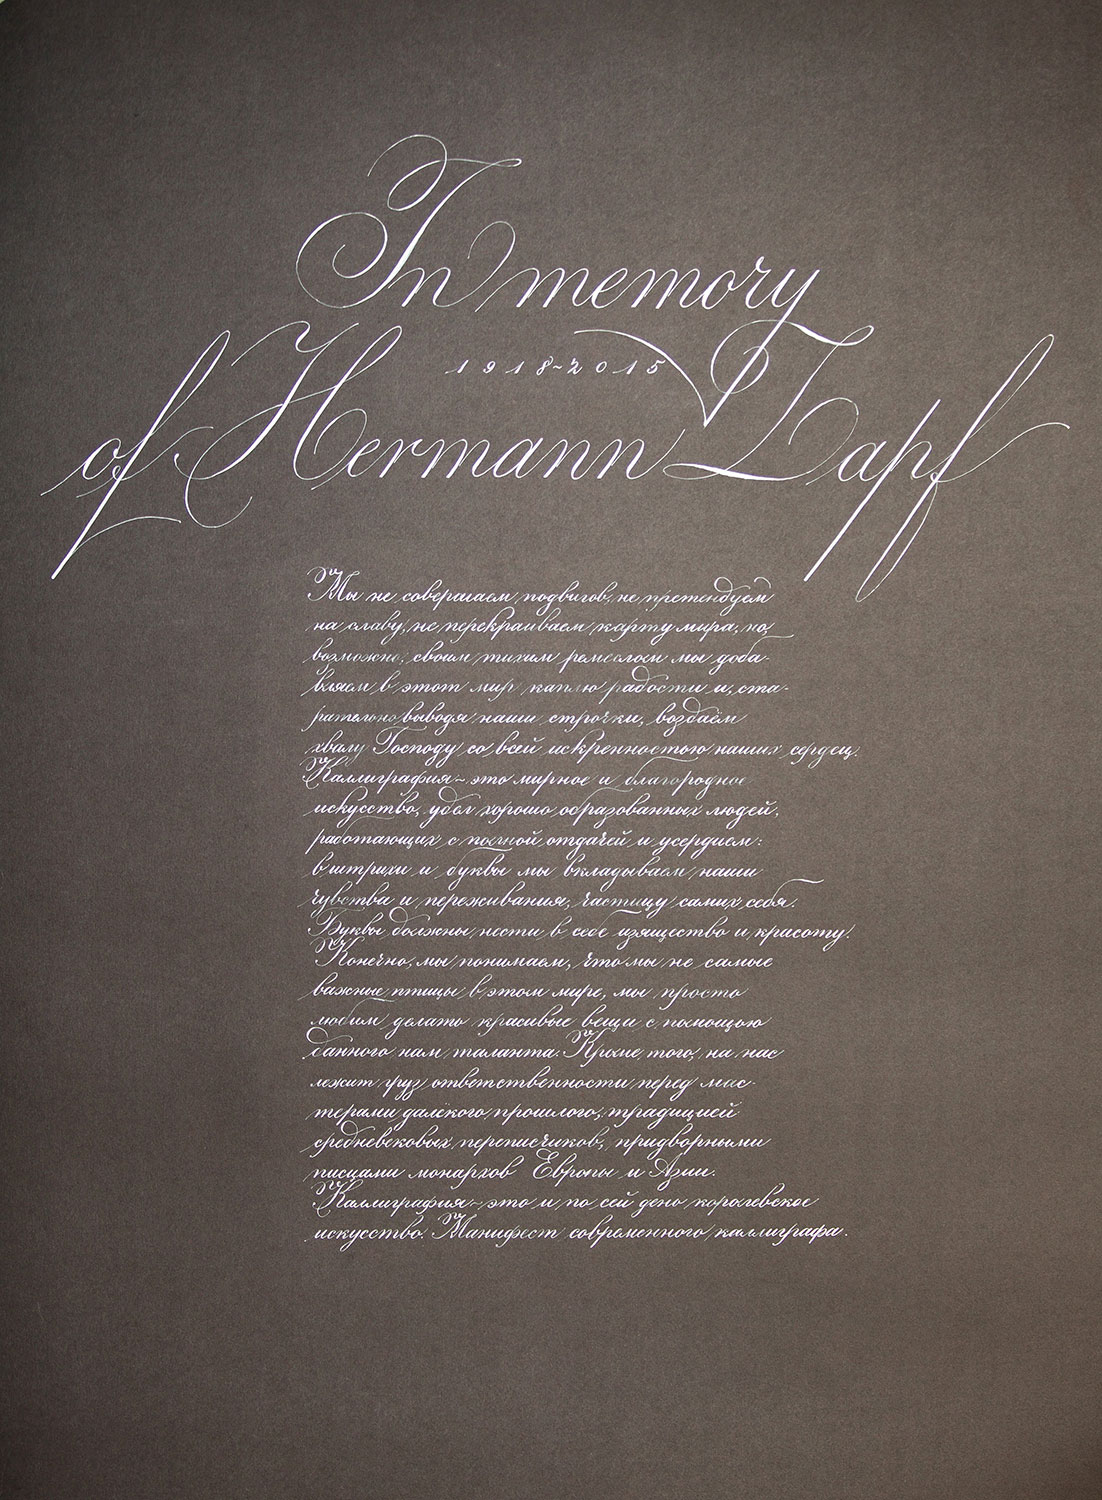 In memory
1918-2015
of Hermann Zapf
Мы не совершаем подвигов, не претендуем
на славу, не перекраиваем карту мира, но,
возможно, своим тихим ремеслом мы доба-
вляем в этот мир каплю радости и, ста-
рательно выводя наши строчки, воздаём
хвалу Господу со всей искренностью наших сердец.
Каллиграфия - это мирное и благородное
искусство, удел хорошо образованных людей,
работающих с полной отдачей и усердием:
в штрихи и буквы мы вкладываем наши
чувства и переживания, частицу самих себя.
Буквы должны нести в себе изящество и красоту.
Конечно, мы понимаем, что мы не самые
важные птицы в этом мире, мы просто
любим делать красивые вещи с помощью
данного нам таланта. Кроме того, на нас
лежит груз ответственности перед мас-
терами далёкого прошлого, традицией
средневековых переписчиков, придворными
писцами монархов Европы и Азии.
Каллиграфия - это и по сей день королевское
искусство. Манифест современного каллиграфа.